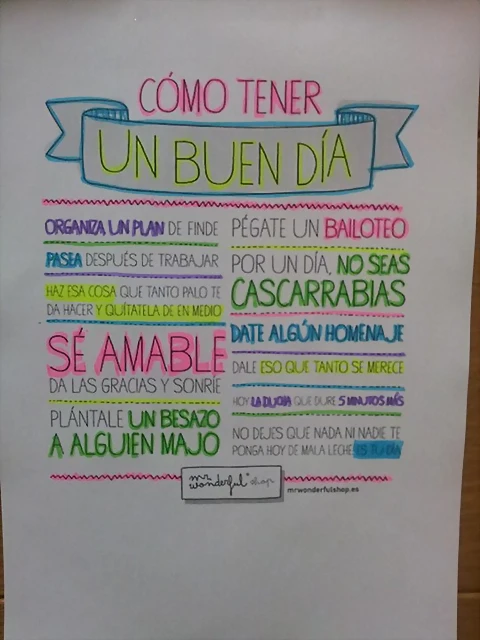 CÓMO TENER
UN BUEN DÍA
ORGANIZA UN PLAN DE FINDE
PASEA DESPUÉS DE TRABAJAR
HAZ ESA COSA QUE TANTO PALO TE
DA HACER Y QUÍTATELA DE EN MEDIO
SÉ AMABLE
DA LAS GRACIAS Y SONRÍE
PLÁNTALE UN BESAZO
A ALGUIEN MAJO
PÉGATE UN BAILOTEO
POR UN DÍA, NO SEAS
CASCARRABIAS
DATE ALGÚN HOMENAJE
DALE ESO QUE TANTO SE MERECE
HOY LA DUCHA QUE DURE 5 MINUTOS MÁS
NO DEJES QUE NADA NI NADIE TE
PONGA HOY DE MALA LECHE ES TU DÍA
mr. wonderful* shop
mrwonderfulshop.es